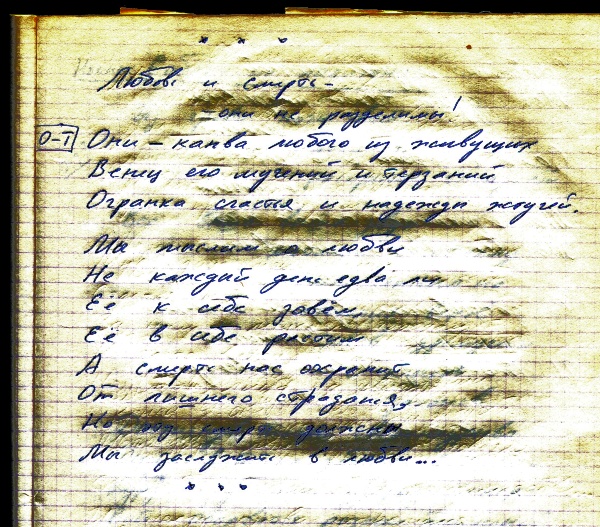 * * *
Любовь и смерть –
– они не разделимы!
О-Т Они – канва любого из живущих
Венец его мучений и терзаний
Огранка счастья и надежды жгучей.
Мы мыслим о любви
Не каждый день едва ли
Её к себе зовём
Её в себе растим
А смерть нас охранит
От лишнего страданья,
Но под смерть должны
Мы заслужить в любви...
* * *